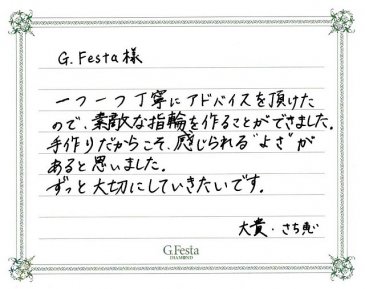 G. Festa 様
一つ一つ丁寧にアドバイスを頂けた
ので、素敵な指輪を作ることができました。
手作りだからこそ、感じられる"よさ"が
あると思いました。
ずっと大切にしていきたいです。
大貴・さち恵
G.Festa
DIAMOND